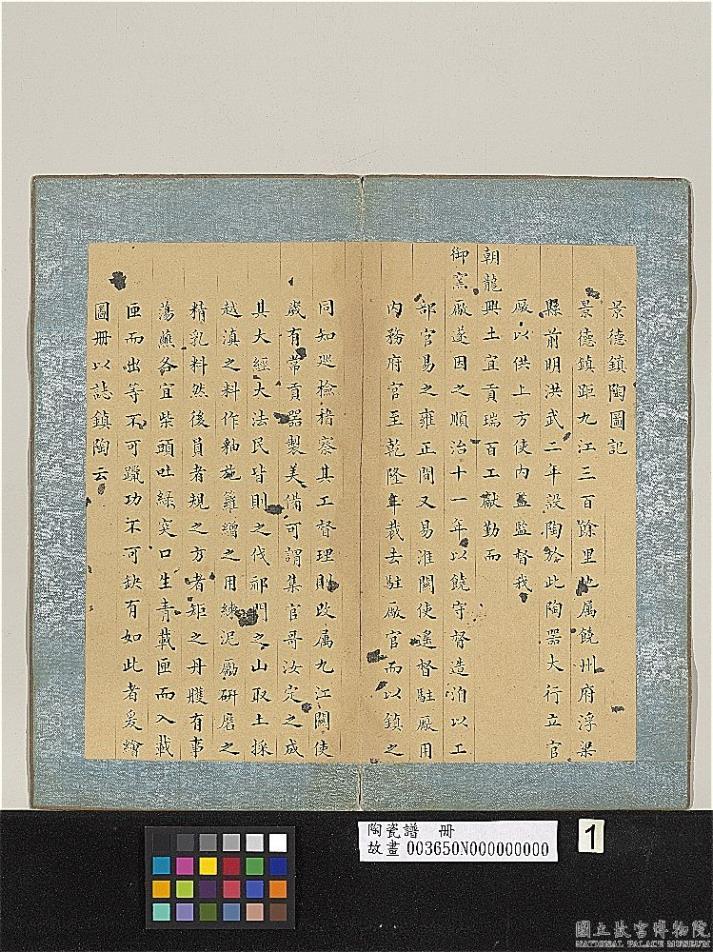 景德鎮陶圖記
景德鎮距九江三百餘里地属饒州府浮梁
縣前明洪武二年設陶於此陶器大行立官
廠以供上方使內監監督我
朝龍興土宜貢瑞百工献勤而
御窯廠遂因之順治十一年以饒守督造洎以工
部官易之雍正間又易淮關使遙督駐廠用
內務府官至乾隆年裁去駐廠官而以鎮之
同知巡檢稽察其工督理則改属九江關使
歲有常貢器製美備可謂集官哥汝定之成
其大經大法民皆則之伐祁門之山取土採
越滇之料作釉施繪之用練泥廠研磨之
精乳料然後員者規之方者矩之丹雘有事
蕩蘸各宜柴頭吐綠突口生青載匣而入載
匣而出等不可躐功不可缺有如此者爰繪
圖冊以誌鎮陶云
陶瓷譜 冊
故畫 003650N000000000
1
國立故宮博物院
NATIONAL PALACE MUSEUM